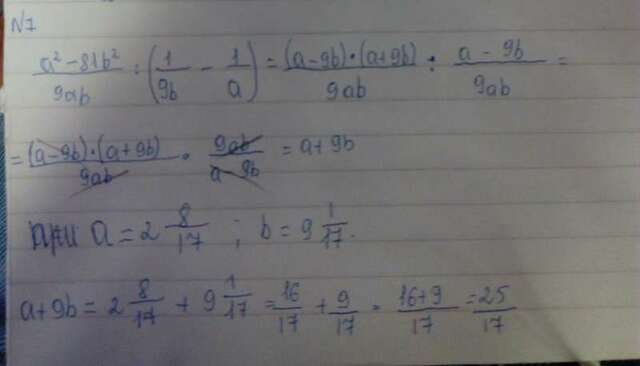 N7
(a² - 81b²)/(9ab) : (1/(9b) - 1/a) = ((a-9b)·(a+9b))/(9ab) : (a - 9b)/(9ab) =
= ((a-9b)·(a+9b))/(9ab) · (9ab)/(a-9b) = a+9b
при a = 2 8/17 ; b = 9 1/17.
a+9b = 2 8/17 + 9 1/17 = 16/17 + 9/17 = (16+9)/17 = 25/17